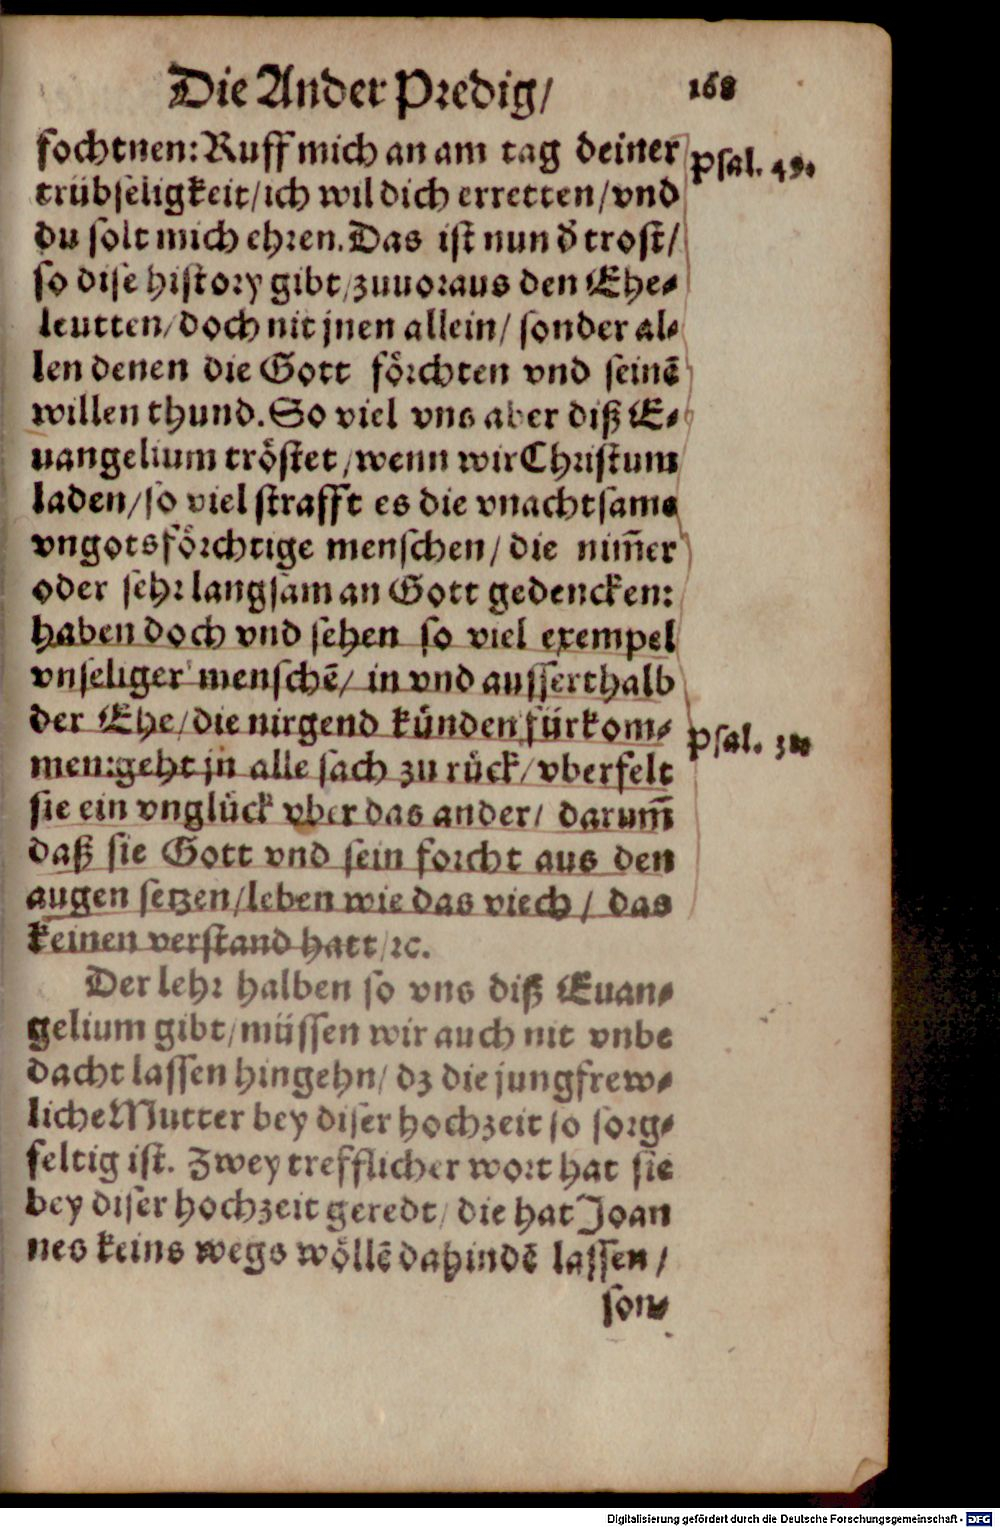 Die Ander Predig/ 168
fochtnen: Ruff mich an am tag deiner
Psal. 49.
trübseligkeit/ich wil dich erretten/vnd
du solt mich ehren. Das ist nun d̕ trost/
so dise history gibt/zuuoraus den Ehe-
leutten/doch nit jnen allein/ sonder al-
len denen die Gott förchten vnd seinē
willen thund. So viel vns aber diß E-
uangelium tröstet/wenn wir Christum
laden/so viel strafft es die vnachtsame
vngotsförchtige menschen/ die nim̄er
oder sehr langsam an Gott gedencken:
haben doch vnd sehen so viel exempel
vnseliger menschē/ in vnd ausserthalb
der Ehe/die nirgend künden fürkom-
Psal. 31.
men: geht jn alle sach zu rück/vberfelt
sie ein vnglück vber das ander/ darum̄
daß sie Gott vnd sein forcht aus den
augen setzen/leben wie das viech/ das
keinen verstand hatt/ꝛc.
Der lehr halben so vns diß Euan-
gelium gibt/müssen wir auch nit vnbe
dacht lassen hingehn/ dz die jungfrew-
liche Mutter bey diser hochzeit so sorg-
feltig ist. Zwey trefflicher wort hat sie
bey diser hochzeit geredt/ die hat Joan
nes keins wegs wöllē dahindē lassen/
son-
Digitalisierung gefördert durch die Deutsche Forschungsgemeinschaft - DFG